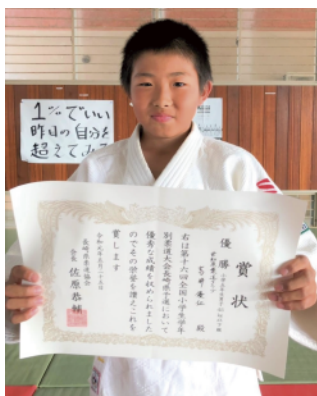 1%でいい
昨日の自分を
超えてみ
賞状
優勝
殿
右は第十六回全国小学生学年
別柔道大会長崎県予選において
優秀な成績を収められました
のでその栄誉を讃えこれを
賞します
令和元年五月二十五日
長崎県柔道協会
会長 佐原恭輔